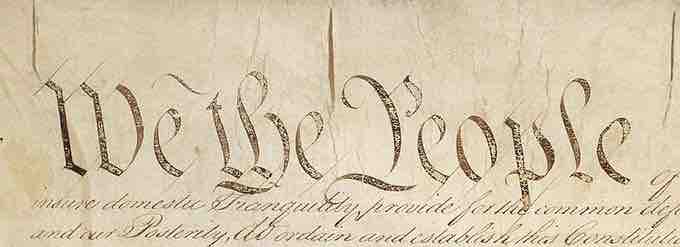 We the People of
insure domestic Tranquility, provide for the common def
and our Posterity, do ordain and establish this Constituti